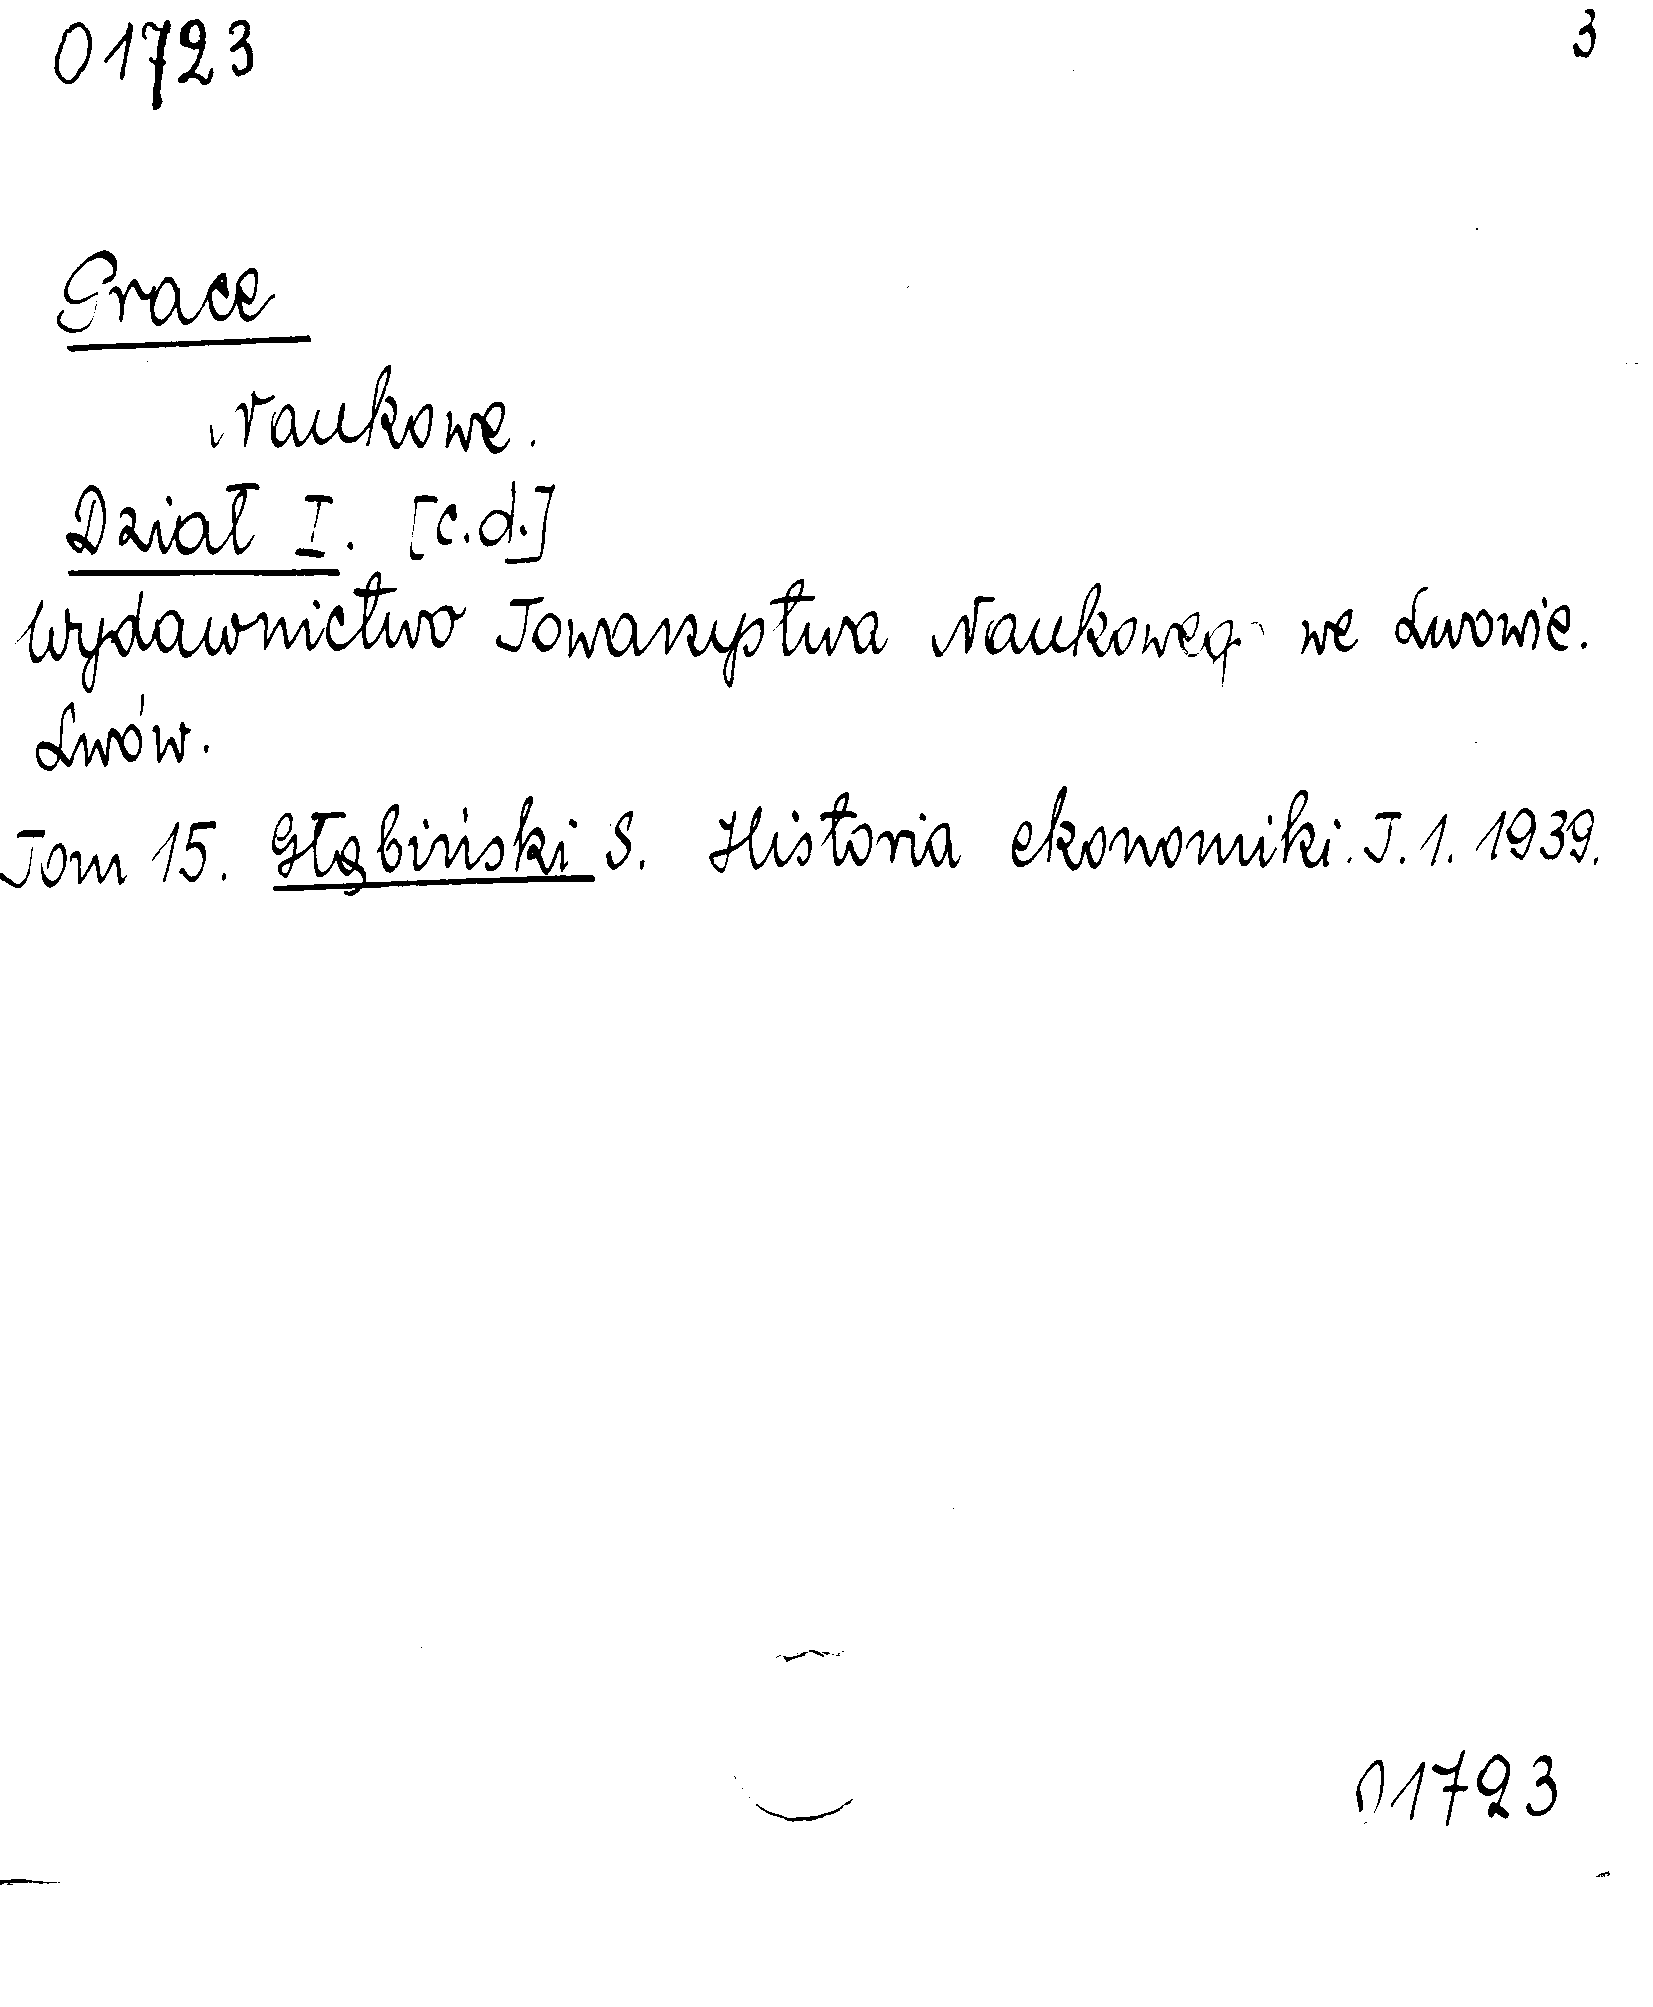 01723 3
Prace
Naukowe.
Dział I. [c.d.]
Wydawnictwo Towarzystwa Naukowego we Lwowie.
Lwów.
Tom 15. Głąbiński S. Historia ekonomiki. T.1. 1939.
01723